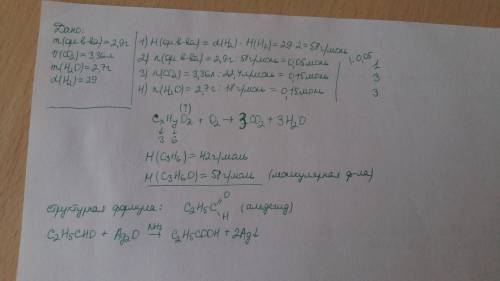 Дано:
m(орг.в-ва)=2,9г
V(CO₂)=3,36л
m(H₂O)=2,7г
d(H₂)=29
1) M(орг.в-ва) = d(H₂) · M(H₂)=29·2=58г/моль
2) n(орг.в-ва)=2,9г:58г/моль=0,05моль
3) n(CO₂)=3,36л:22,4л/моль=0,15моль
4) n(H₂O)=2,7г:18г/моль=0,15моль
: 0,05
1
3
3
(?)
CₓHyOz + O₂ → 3CO₂ + 3H₂O
↓ ↓
3 6
M(C₃H₆)=42г/моль
M(C₃H₆O)=58г/моль (молекулярная ф-ла)
структурная формула: C₂H₅C O H (альдегид)
C₂H₅CHO + Ag₂O NH₃ → C₂H₅COOH + 2Ag↓